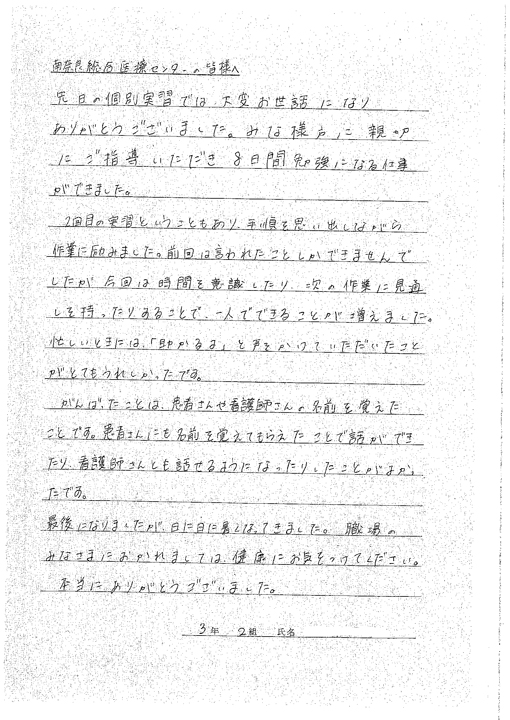 南奈良総合医療センターの皆様へ
先日の個別実習では、大変お世話になり
ありがとうございました。みな様方に親切
にご指導いただき8日間勉強になる仕事
ができました。
2回目の実習ということもあり、手順を思い出しながら
作業に励みました。前回は言われたことしかできませんで
したが今回は時間を意識したり、次の作業に見通
しを持ったりすることで、一人でできることが増えました。
忙しいときには、「助かるよ」と声をかけていただいたこと
がとてもうれしかったです。
がんばったことは、患者さんや看護師さんの名前を覚えた
ことです。患者さんにも名前を覚えてもらえたことで話ができ
たり、看護師さんとも話せるようになったりしたことがよかっ
たです。
最後になりましたが、日に日に暑くなってきました。職場の
みなさまにおかれましては、健康にお気をつけてください。
本当にありがとうございました。
3年 2組 氏名